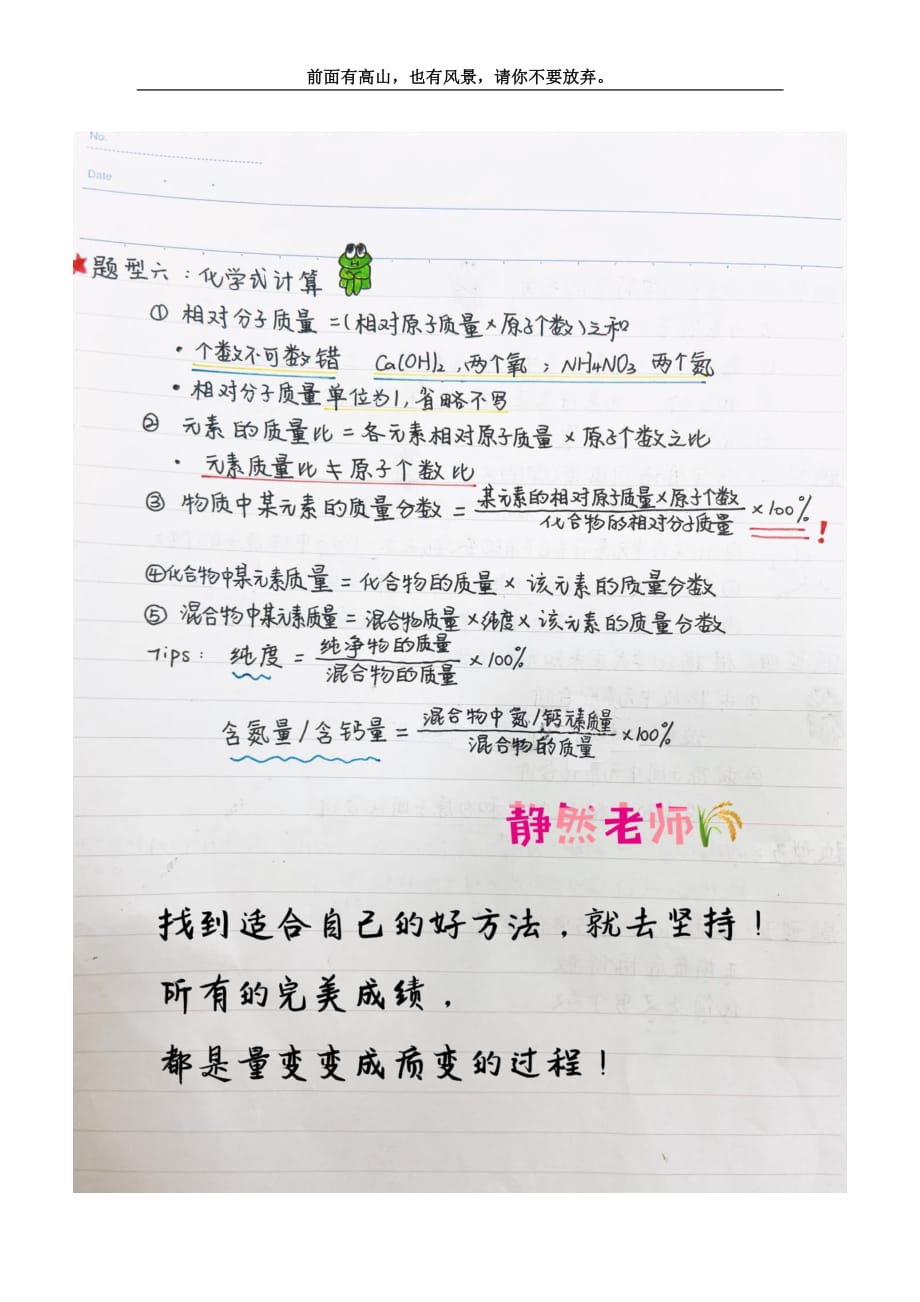 前面有高山，也有风景，请你不要放弃。
No.
Date
题型六：化学式计算
① 相对分子质量=(相对原子质量×原子个数)之和
·个数不可数错 Ca(OH)₂、两个氧；NH4NO3 两个氮
·相对分子质量单位为1,省略不写
② 元素的质量比=各元素相对原子质量×原子个数之比
·元素质量比≠原子个数比
③ 物质中某元素的质量分数=某元素的相对原子质量×原子个数/化合物的相对分子质量×100% !
④化合物中某元素质量=化合物的质量×该元素的质量分数
⑤ 混合物中某元素质量=混合物质量×纯度×该元素的质量分数
Tips: 纯度=纯净物的质量/混合物的质量×100%
含氮量/含钙量=混合物中氮/钙元素质量/混合物的质量×100%
静然老师
找到适合自己的好方法，就去坚持！
所有的完美成绩，
都是量变变成质变的过程！